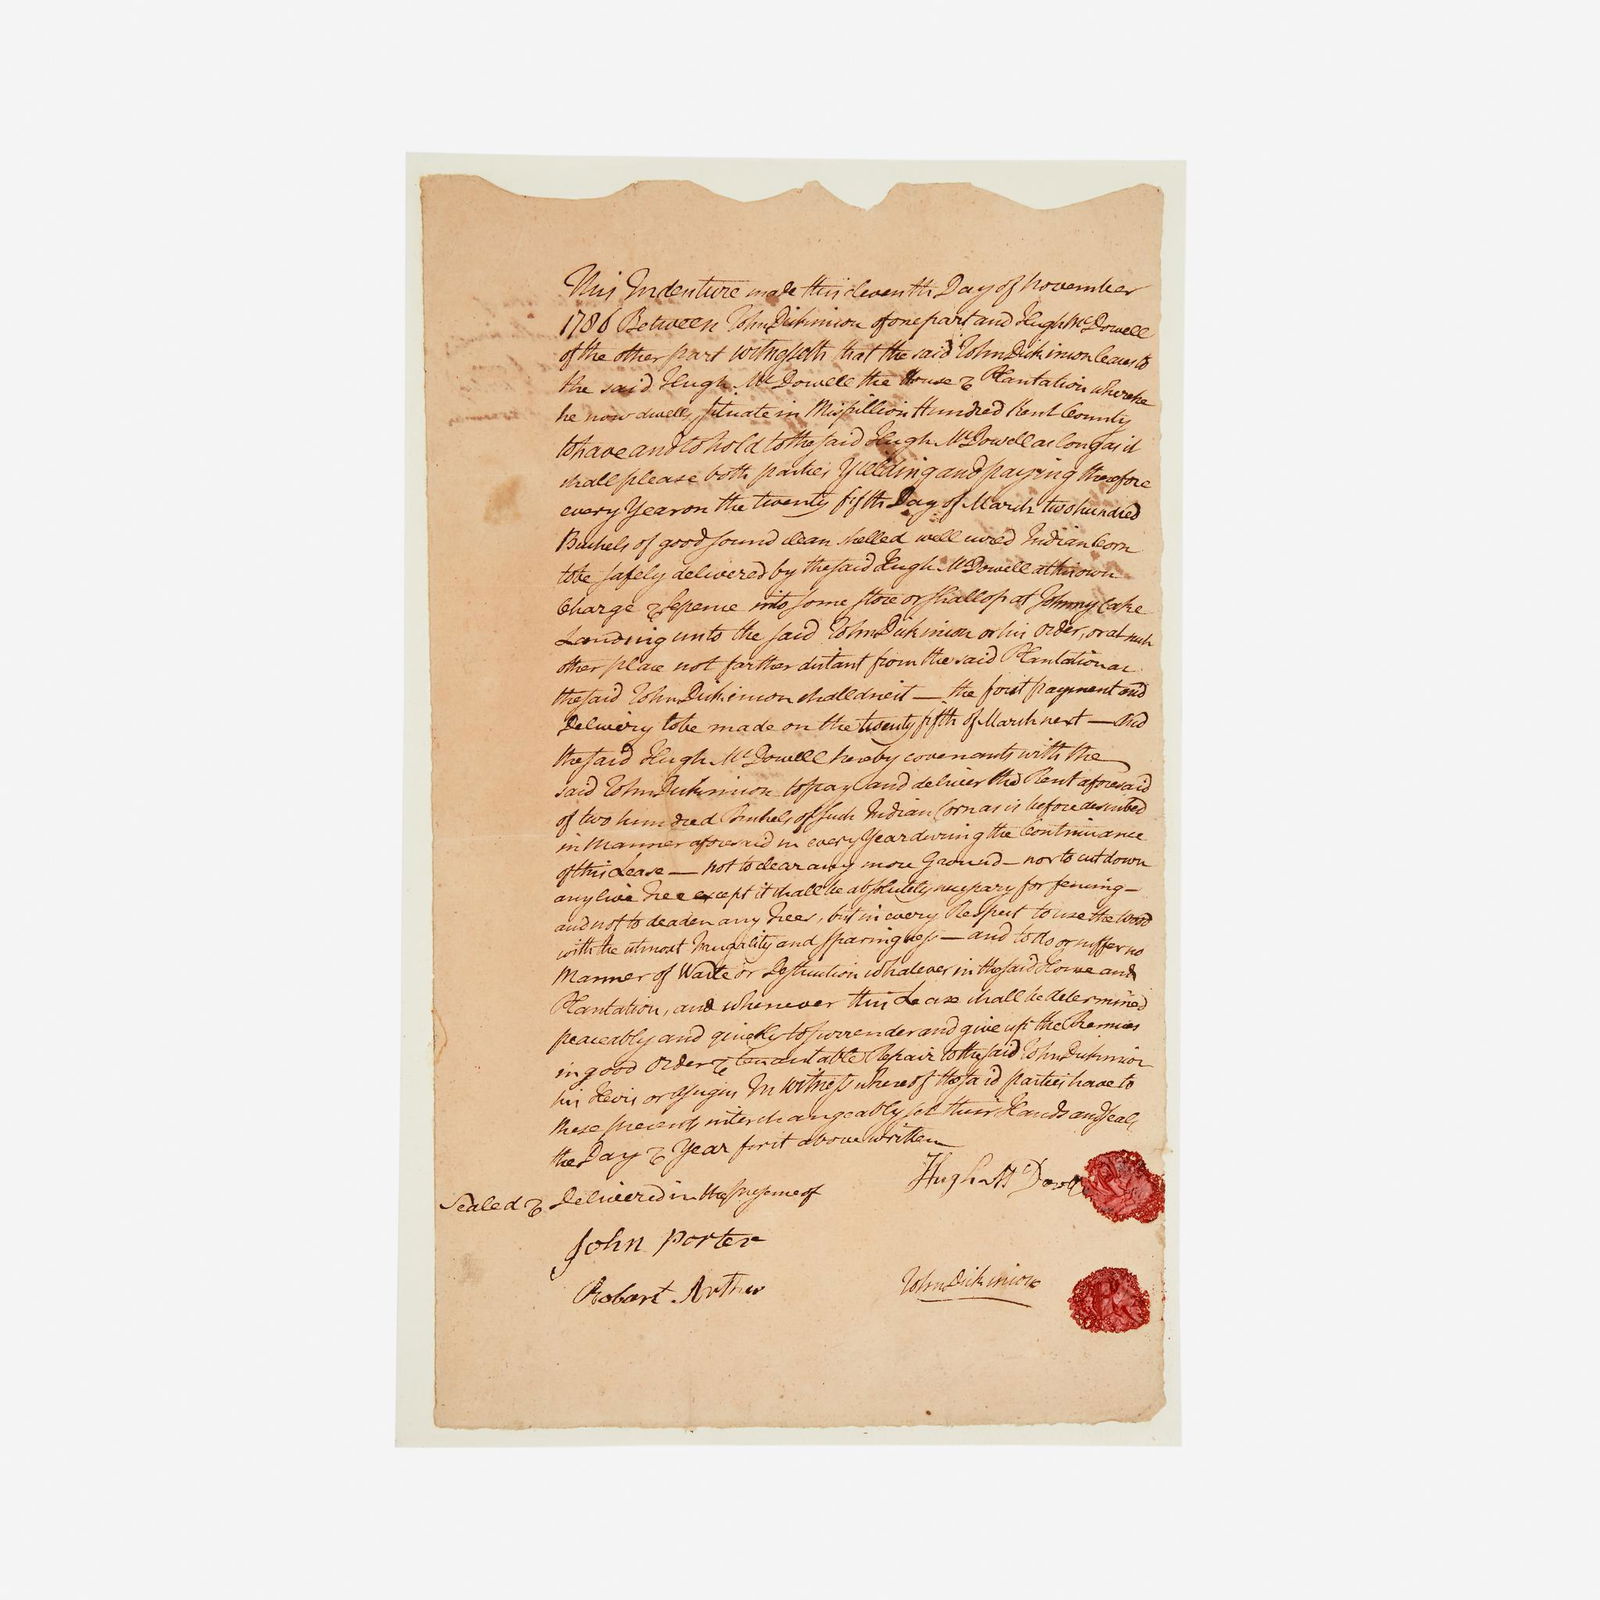 This Indenture made this eleventh Day of November
1786 Between John Dickinson of one part and Hugh McDowell
of the other part witnesseth that the said John Dickinson leases to
the said Hugh McDowell the House & Plantation whereon
he now dwells situate in Mispillion Hundred Kent County
to have and to hold to the said Hugh McDowell as long as it
shall please both parties Yielding and paying therefore
every Year on the twenty fifth Day of March two hundred
Bushels of good sound clean shelled well cured Indian Corn
to be safely delivered by the said Hugh McDowell at his own
Charge & Expense into some store or shallop at Johnny Cake
Landing unto the said John Dickinson or his order, or at such
other place not farther distant from the said Plantation as
the said John Dickinson shall direct — the first payment and
Delivery to be made on the twenty fifth of March next — And
the said Hugh McDowell hereby covenants with the
said John Dickinson to pay and deliver the Rent aforesaid
of two hundred Bushels of such Indian Corn as is before described
in Manner aforesaid in every Year during the Continuance
of this Lease — not to clear any more Ground — nor to cut down
any live Tree except it shall be absolutely necessary for fencing —
and not to deaden any Trees, but in every Respect to use the Wood
with the utmost frugality and sparingness — and to do or suffer no
Manner of Waste or Destruction whatever in the said House and
Plantation, and whenever this Lease shall be determined
peaceably and quickly to surrender and give up the Premises
in good order & tenantable Repair to the said John Dickinson
his Heirs or Assigns In witness whereof the said parties have to
these presents interchangeably set their Hands and seals
the Day & Year first above written
Sealed & Delivered in the presence of
Hugh McDowell
John Porter
Robert Arthur
John Dickinson